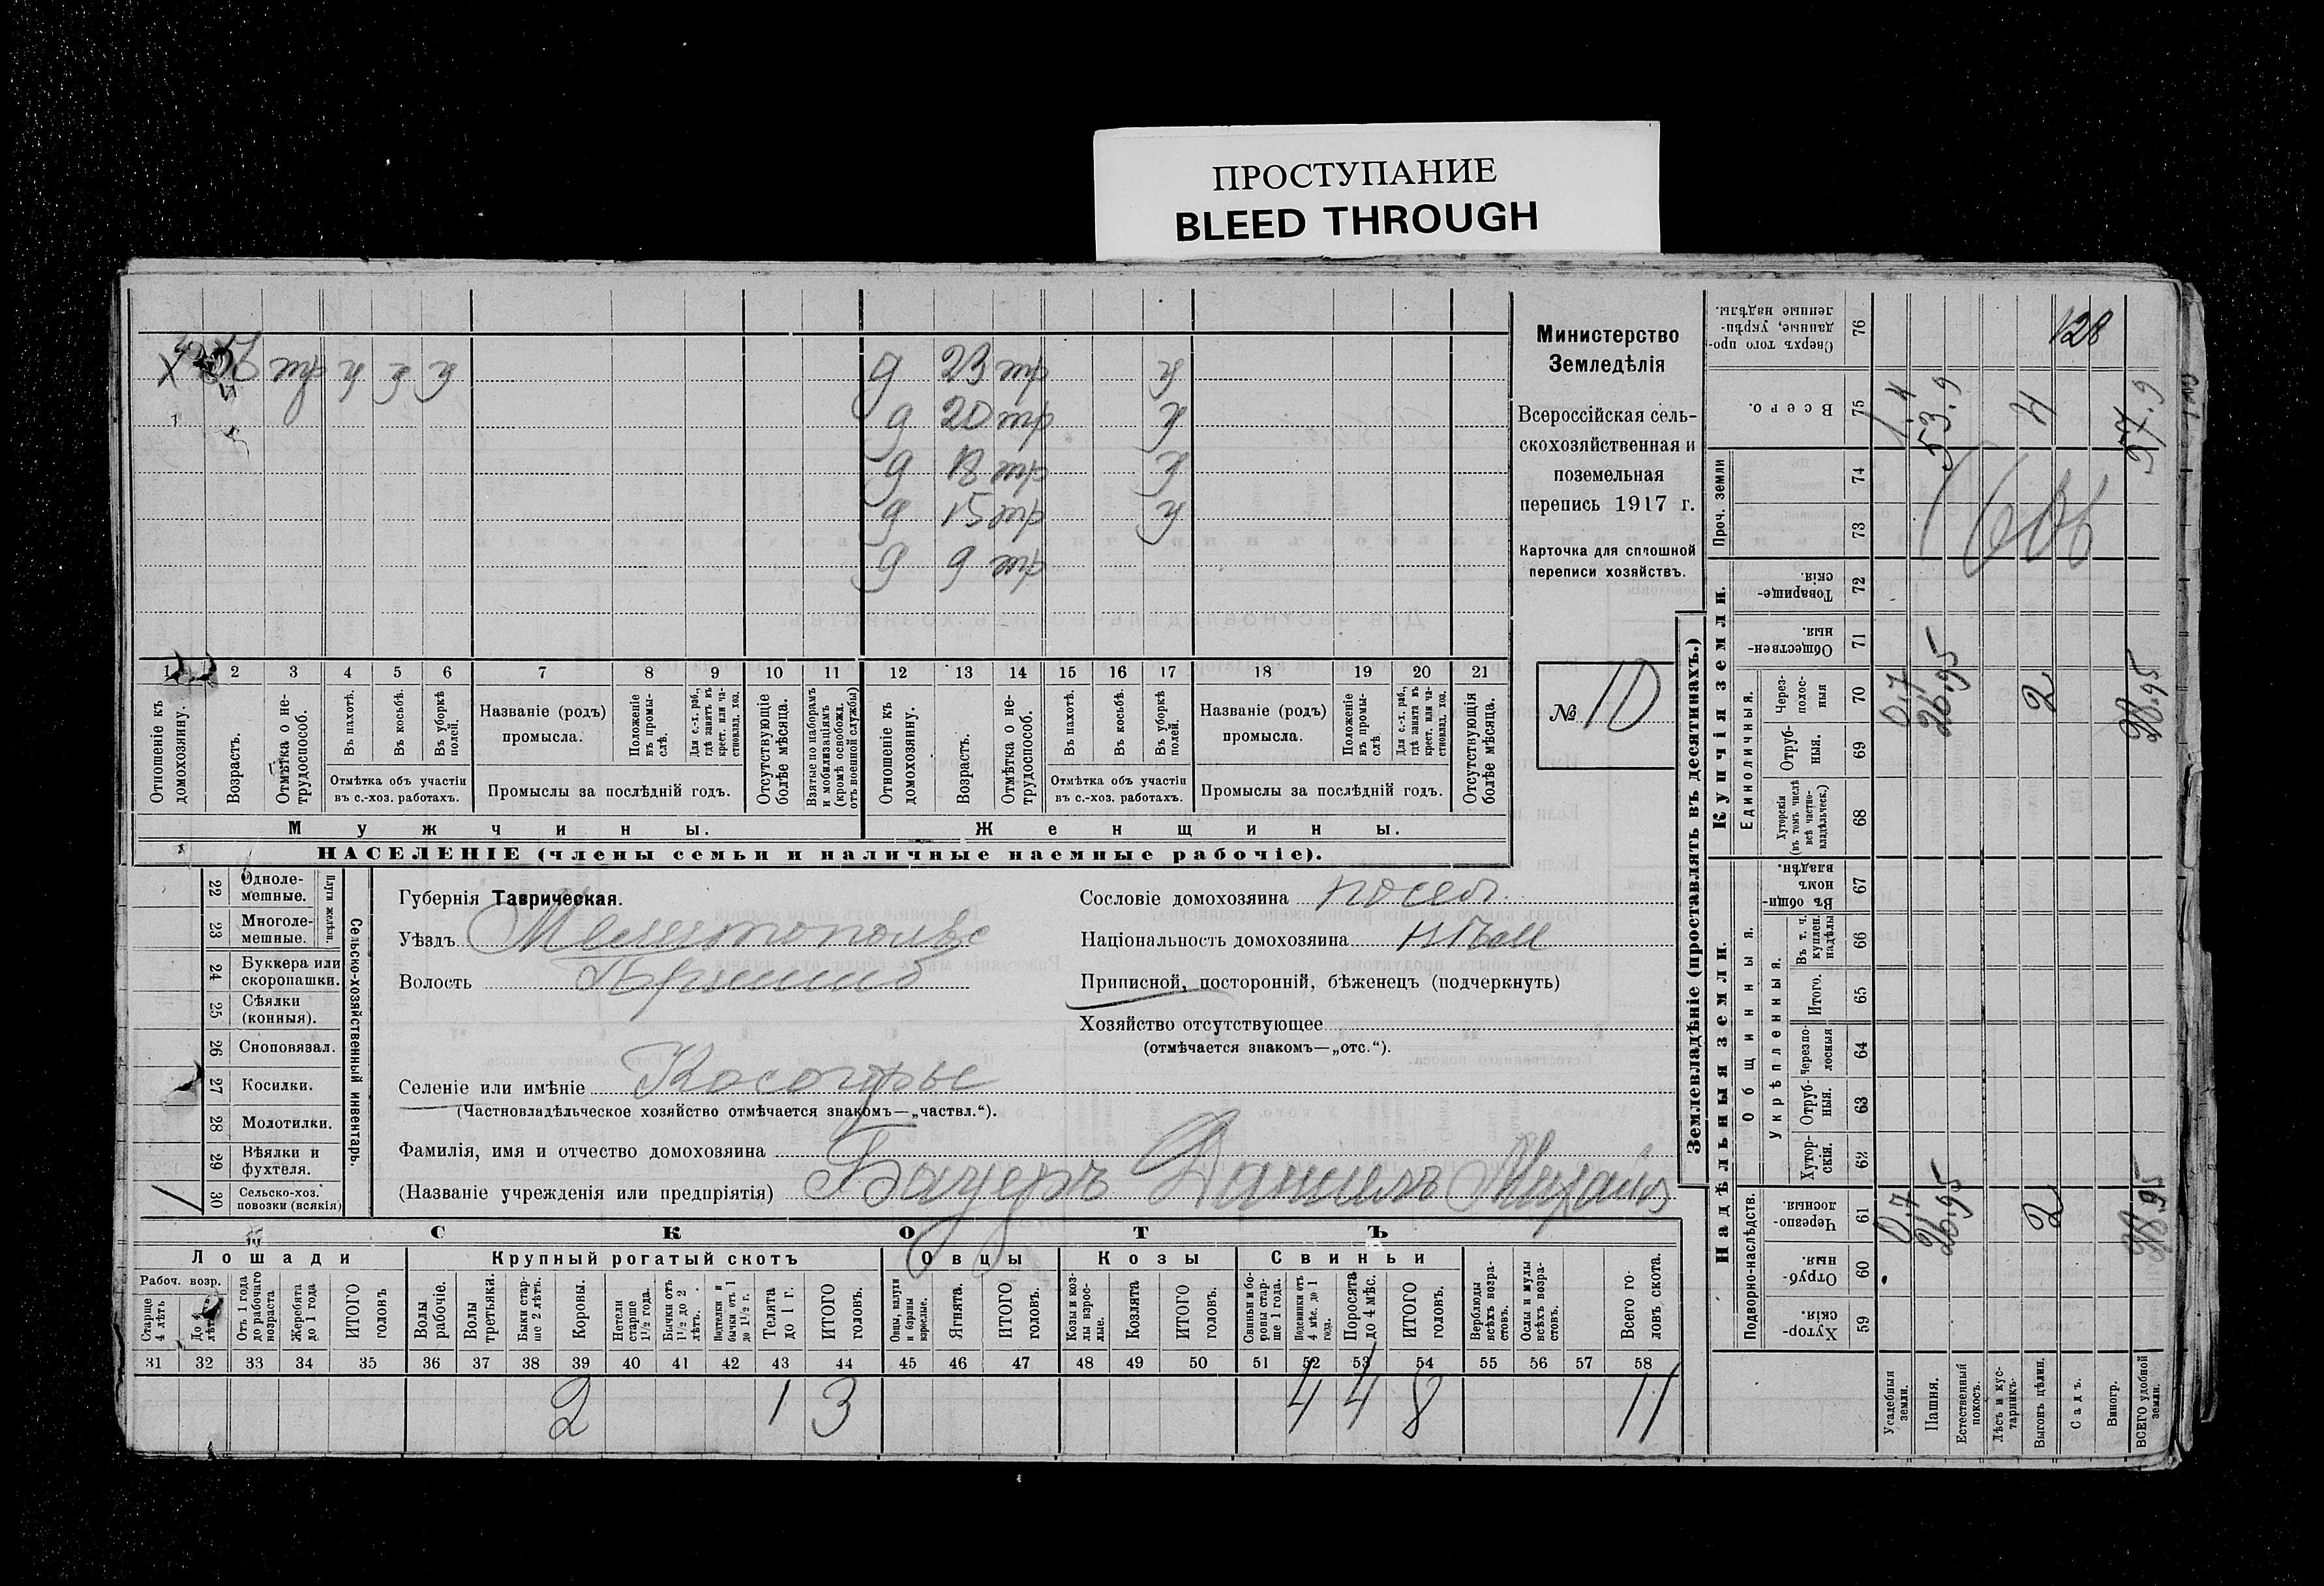 ПРОСТУПАНИЕ
BLEED THROUGH
Министерство
Земледѣлія
Всероссійская сель-
скохозяйственная и
поземельная
перепись 1917 г.
Карточка для сплошной
переписи хозяйствъ.
№ 10
Х 57 тр
д 23 тр
д 20 тр
д 18 тр
д 15 тр
д 9 тр
1 2 3 4 5 6 7 8 9 10 11 12 13 14 15 16 17 18 19 20 21
Отношеніе къ домохозяину.
Возрастъ.
Отмѣтка о не-трудоспособ.
Въ пахотѣ.
Въ косьбѣ.
Въ уборкѣ полей.
Отмѣтка объ участіи
въ с.-хоз. работахъ.
Названіе (родъ)
промысла.
Положеніе въ промы-слѣ.
Для с.-х. раб., гдѣ занятъ въ крест. или ча-стновлад. хоз.
Промыслы за послѣдній годъ.
Отсутствующіе болѣе мѣсяца.
Взятые по наборамъ и мобилизаціямъ (кромѣ освобожд. отъ военной службы)
Отношеніе къ домохозяину.
Возрастъ.
Отмѣтка о не-трудоспособ.
Въ пахотѣ.
Въ косьбѣ.
Въ уборкѣ полей.
Отмѣтка объ участіи
въ с.-хоз. работахъ.
Названіе (родъ)
промысла.
Положеніе въ промы-слѣ
Для с.-х. раб., гдѣ занята въ крест. или ча-стновлад. хоз.
Промыслы за послѣдній годъ.
Отсутствующія болѣе мѣсяца.
Мужчины.
Женщины.
НАСЕЛЕНІЕ (члены семьи и наличные наемные рабочіе).
Сельско-хозяйственный инвентарь.
Плуги желѣзн.
22 Одноле-мешные.
23 Многоле-мешные.
24 Буккера или скоропашки.
25 Сѣялки (конныя).
26 Сноповязал.
27 Косилки.
28 Молотилки.
29 Вѣялки и фухтеля.
30 Сельско-хоз. повозки (всякія) 1
Губернія Таврическая.
Уѣздъ Мелитопольс
Волость
Селеніе или имѣніе Косогорье
(Частновладѣльческое хозяйство отмѣчается знакомъ—„частвл.“).
Фамилія, имя и отчество домохозяина
(Названіе учрежденія или предпріятія) Бауеръ Данилъ Михайл
Сословіе домохозяина посел.
Національность домохозяина нѣм
Приписной, посторонній, бѣженецъ (подчеркнуть)
Хозяйство отсутствующее
(отмѣчается знакомъ—„отс.“).
СКОТЪ
Лошади
Крупный рогатый скотъ
Овцы
Козы
Свиньи
Рабоч. возр.
Старше 4 лѣтъ
До 4 лѣтъ
Отъ 1 года до рабочаго возраста
Жеребята до 1 года
ИТОГО головъ
Волы рабочіе.
Волы третьяки.
Быки стар-ше 2 лѣтъ.
Коровы.
Нетели старше 1½ года.
Бычки отъ 1½ до 2 лѣтъ.
Подтелки и бычки отъ 1 до 1½ г.
Телята до 1 г.
ИТОГО головъ.
Овцы, валухи и бараны взрослые.
Ягнята.
ИТОГО головъ.
Козы и коз-лы взрос-лые.
Козлята
ИТОГО головъ.
Свиньи и бо-ровы стар-ше 1 года.
Подсвинки отъ 4 мѣс. до 1 года.
Поросята до 4 мѣс.
ИТОГО головъ.
Верблюды всѣхъ возра-стовъ.
Ослы и мулы всѣхъ возра-стовъ.
Всего го-ловъ скота.
31 32 33 34 35 36 37 38 39 40 41 42 43 44 45 46 47 48 49 50 51 52 53 54 55 56 57 58
2 1 3 4 4 8 11
Землевладѣніе (проставлять въ десятинахъ.)
Надѣльныя земли.
Купчія земли.
Проч. земли
Подворно-наслѣдств.
Общинныя.
Укрѣпленныя.
Единоличныя.
Хутор-скія. 59
Отруб-ныя. 60
Черезпо-лосныя. 61
Хутор-скія. 62
Отруб-ныя. 63
Черезпо-лосныя 64
Итого. 65
Въ т. ч. куплен. надѣлы 66
Въ общи-номъ владѣн. 67
Хуторскія (въ томъ числѣ всѣ частно-владѣльческ.) 68
Отруб-ныя. 69
Через-полос-ныя 70
Обществен-ныя. 71
Товарище-скія. 72
73
74
Всего. 75
Сверхъ того про-данные, укрѣп-ленные надѣлы. 76
Усадебныя земли.
Пашня.
Естественный покосъ.
Лѣсъ и кус-тарникъ.
Выгонъ цѣлин.
Садъ.
Виногр.
ВСЕГО удобной земли.
0,7 26,95 2 28,95
0,7 26,95 2 28,95
1,4 53,9 4 57,9
128